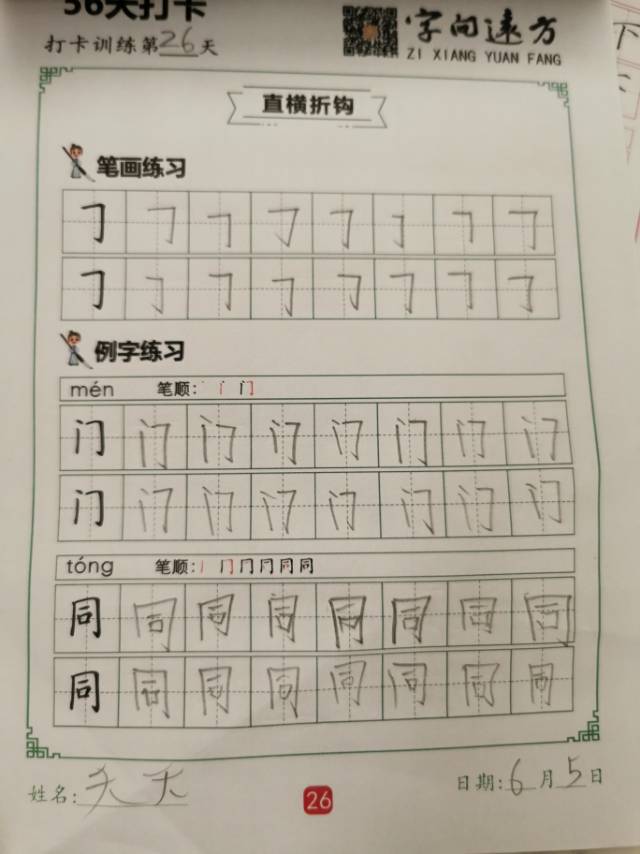 56天打卡
打卡训练第26天
字向遠方
ZI XIANG YUAN FANG
直横折钩
笔画练习
𠃌 𠃌 𠃌 𠃌 𠃌 𠃌 𠃌 𠃌
𠃌 𠃌 𠃌 𠃌 𠃌 𠃌 𠃌 𠃌
例字练习
mén 笔顺: 丶 门
门 门 门 门 门 门 门 门
门 门 门 门 门 门 门 门
tóng 笔顺: 丨 冂 冂 同 同
同 同 同 同 同 同 同 同
同 同 同 同 同 同 同 同
姓名: 天天
26
日期: 6月5日